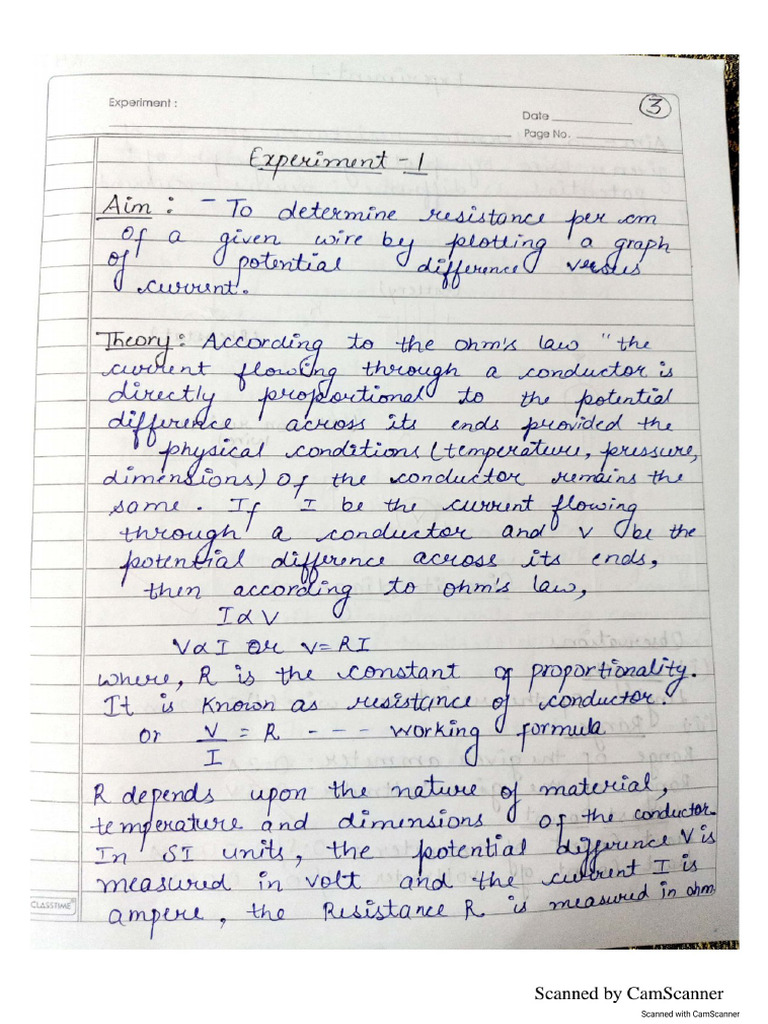 Experiment :
3
Date
Page No.
Experiment - 1
Aim : - To determine resistance per cm
of a given wire by plotting a graph
of potential difference versus
current.
Theory : According to the ohm's law "the
current flowing through a conductor is
directly proportional to the potential
difference across its ends provided the
physical conditions (temperature, pressure,
dimensions) of the conductor remains the
same. If I be the current flowing
through a conductor and V be the
potential difference across its ends,
then according to ohm's law,
I α V
V α I or V = RI
where, R is the constant of proportionality.
It is known as resistance of conductor.
or V/I = R - - - - working formula
R depends upon the nature of material,
temperature and dimensions of the conductor.
In SI units, the potential difference V is
measured in volt and the current I is
ampere, the Resistance R is measured in ohm
CLASSTIME
Scanned by CamScanner
Scanned with CamScanner